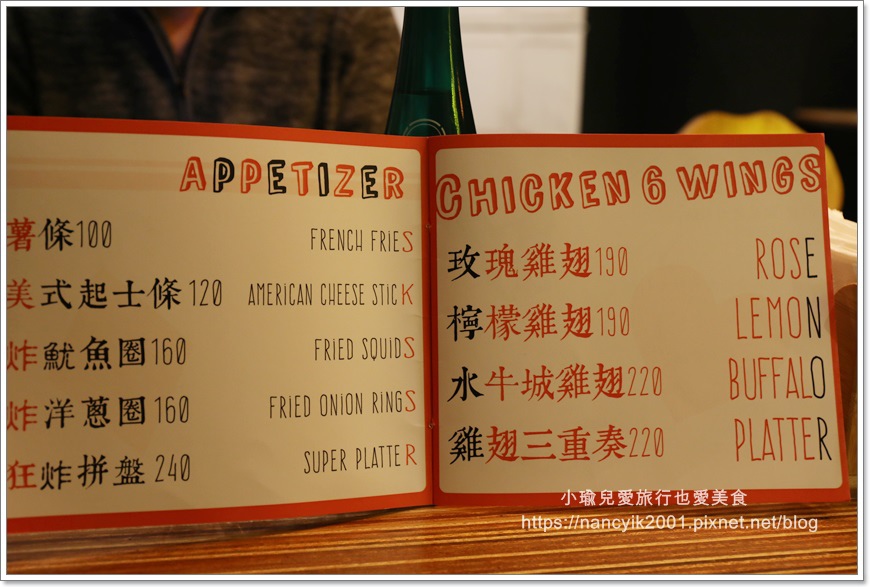 APPETIZER
薯條100 FRENCH FRIES
美式起士條120 AMERICAN CHEESE STICK
炸魷魚圈160 FRIED SQUIDS
炸洋蔥圈160 FRIED ONION RINGS
狂炸拼盤240 SUPER PLATTER
CHICKEN 6 WINGS
玫瑰雞翅190 ROSE
檸檬雞翅190 LEMON
水牛城雞翅220 BUFFALO
雞翅三重奏220 PLATTER
小瑜兒愛旅行也愛美食
https://nancyik2001.pixnet.net/blog